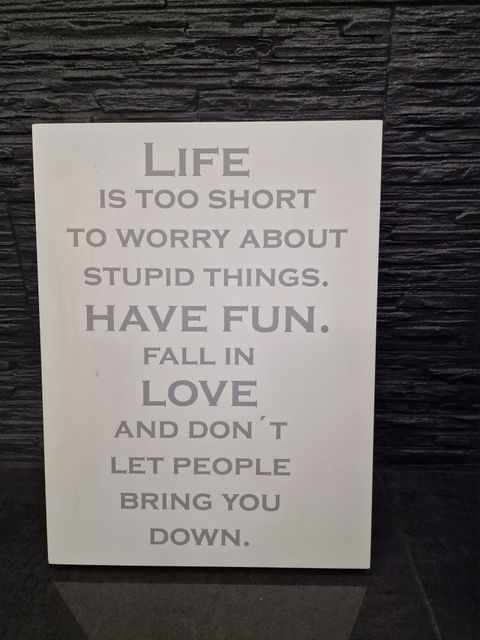 LIFE
IS TOO SHORT
TO WORRY ABOUT
STUPID THINGS.
HAVE FUN.
FALL IN
LOVE
AND DON´T
LET PEOPLE
BRING YOU
DOWN.